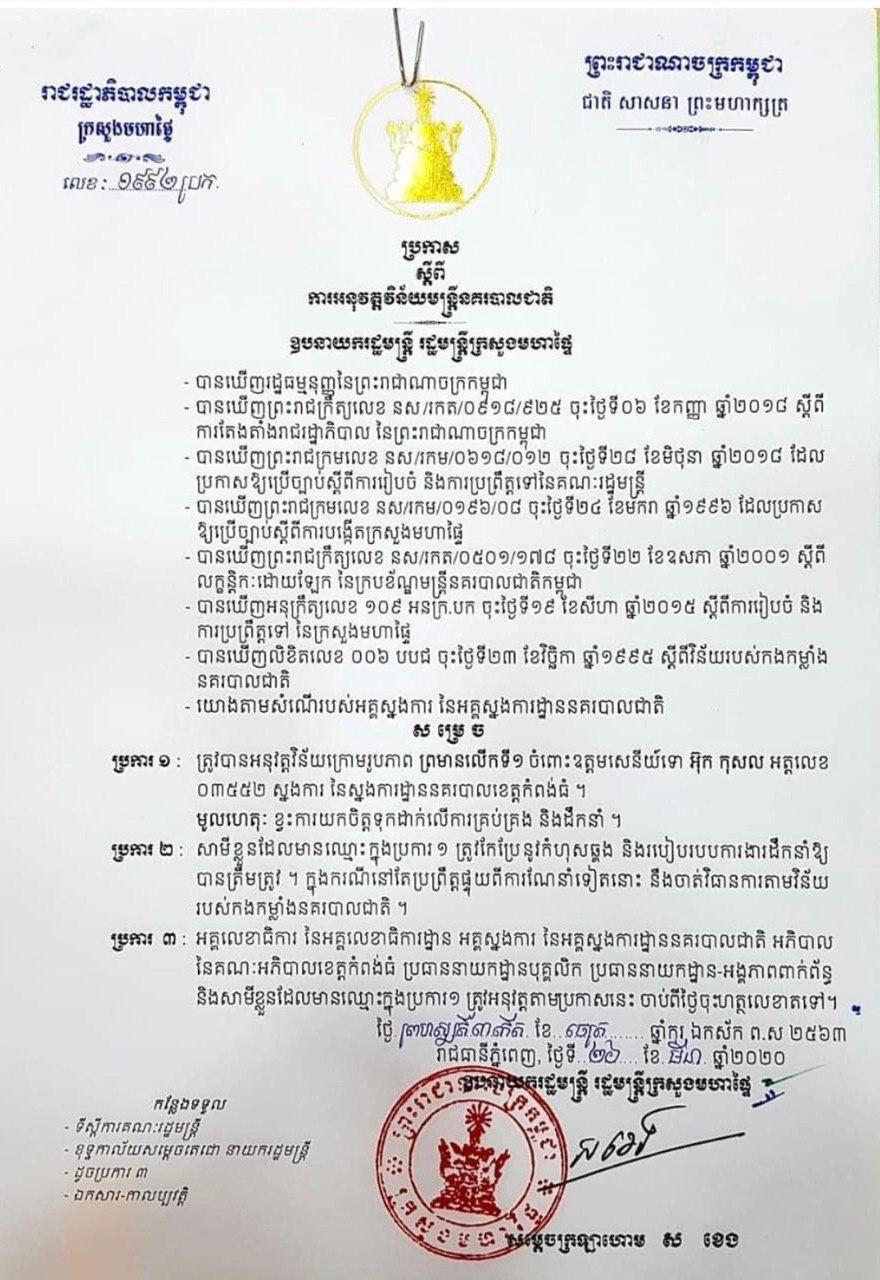 ព្រះរាជាណាចក្រកម្ពុជា
ជាតិ សាសនា ព្រះមហាក្សត្រ
រាជរដ្ឋាភិបាលកម្ពុជា
ក្រសួងមហាផ្ទៃ
លេខ: ១៩៩២ ប្រក.
ប្រកាស
ស្តីពី
ការអនុវត្តវិន័យមន្ត្រីនគរបាលជាតិ
ឧបនាយករដ្ឋមន្ត្រី រដ្ឋមន្ត្រីក្រសួងមហាផ្ទៃ
- បានឃើញរដ្ឋធម្មនុញ្ញនៃព្រះរាជាណាចក្រកម្ពុជា
- បានឃើញព្រះរាជក្រឹត្យលេខ នស/រកត/០៩១៨/៩២៥ ចុះថ្ងៃទី០៦ ខែកញ្ញា ឆ្នាំ២០១៨ ស្តីពី
ការតែងតាំងរាជរដ្ឋាភិបាល នៃព្រះរាជាណាចក្រកម្ពុជា
- បានឃើញព្រះរាជក្រមលេខ នស/រកម/០៦១៨/០១២ ចុះថ្ងៃទី២៨ ខែមិថុនា ឆ្នាំ២០១៨ ដែល
ប្រកាសឱ្យប្រើច្បាប់ស្តីពីការរៀបចំ និងការប្រព្រឹត្តទៅនៃគណៈរដ្ឋមន្ត្រី
- បានឃើញព្រះរាជក្រមលេខ នស/រកម/០១៩៦/០៨ ចុះថ្ងៃទី២៤ ខែមករា ឆ្នាំ១៩៩៦ ដែលប្រកាស
ឱ្យប្រើច្បាប់ស្តីពីការបង្កើតក្រសួងមហាផ្ទៃ
- បានឃើញព្រះរាជក្រឹត្យលេខ នស/រកត/០៥០១/១៧៨ ចុះថ្ងៃទី២២ ខែឧសភា ឆ្នាំ២០០១ ស្តីពី
លក្ខន្តិកៈដោយឡែក នៃក្របខ័ណ្ឌមន្ត្រីនគរបាលជាតិកម្ពុជា
- បានឃើញអនុក្រឹត្យលេខ ១០៩ អនក្រ.បក ចុះថ្ងៃទី១៩ ខែសីហា ឆ្នាំ២០១៥ ស្តីពីការរៀបចំ និង
ការប្រព្រឹត្តទៅ នៃក្រសួងមហាផ្ទៃ
- បានឃើញលិខិតលេខ ០០៦ បបជ ចុះថ្ងៃទី២៣ ខែវិច្ឆិកា ឆ្នាំ១៩៩៥ ស្តីពីវិន័យរបស់កងកម្លាំង
នគរបាលជាតិ
- យោងតាមសំណើរបស់អគ្គស្នងការ នៃអគ្គស្នងការដ្ឋាននគរបាលជាតិ
ស ម្រេ ច
ប្រការ ១ : ត្រូវបានអនុវត្តវិន័យក្រោមរូបភាព ព្រមានលើកទី១ ចំពោះឧត្តមសេនីយ៍ទោ អ៊ុក កុសល អត្តលេខ
០៣៥៥២ ស្នងការ នៃស្នងការដ្ឋាននគរបាលខេត្តកំពង់ធំ ។
មូលហេតុ: ខ្វះការយកចិត្តទុកដាក់លើការគ្រប់គ្រង និងដឹកនាំ ។
ប្រការ ២ : សាមីខ្លួនដែលមានឈ្មោះក្នុងប្រការ ១ ត្រូវកែប្រែនូវកំហុសឆ្គង និងរបៀបរបបការងារដឹកនាំឱ្យ
បានត្រឹមត្រូវ ។ ក្នុងករណីនៅតែប្រព្រឹត្តផ្ទុយពីការណែនាំទៀតនោះ នឹងចាត់វិធានការតាមវិន័យ
របស់កងកម្លាំងនគរបាលជាតិ ។
ប្រការ ៣ : អគ្គលេខាធិការ នៃអគ្គលេខាធិការដ្ឋាន អគ្គស្នងការ នៃអគ្គស្នងការដ្ឋាននគរបាលជាតិ អភិបាល
នៃគណៈអភិបាលខេត្តកំពង់ធំ ប្រធាននាយកដ្ឋានបុគ្គលិក ប្រធាននាយកដ្ឋាន-អង្គភាពពាក់ព័ន្ធ
និងសាមីខ្លួនដែលមានឈ្មោះក្នុងប្រការ១ ត្រូវអនុវត្តតាមប្រកាសនេះ ចាប់ពីថ្ងៃចុះហត្ថលេខាតទៅ។
ថ្ងៃ ព្រហស្បតិ៍ ៣កើត ខែ ចេត្រ ឆ្នាំកុរ ឯកស័ក ព.ស ២៥៦៣
រាជធានីភ្នំពេញ, ថ្ងៃទី ២៦ ខែ មីនា ឆ្នាំ២០២០
ឧបនាយករដ្ឋមន្ត្រី រដ្ឋមន្ត្រីក្រសួងមហាផ្ទៃ
ស ខេង
សម្តេចក្រឡាហោម ស ខេង
កន្លែងទទួល
- ទីស្តីការគណៈរដ្ឋមន្ត្រី
- ខុទ្ទកាល័យសម្តេចតេជោ នាយករដ្ឋមន្ត្រី
- ដូចប្រការ ៣
- ឯកសារ-កាលប្បវត្តិ
ព្រះរាជាណាចក្រកម្ពុជា
ក្រសួងមហាផ្ទៃ